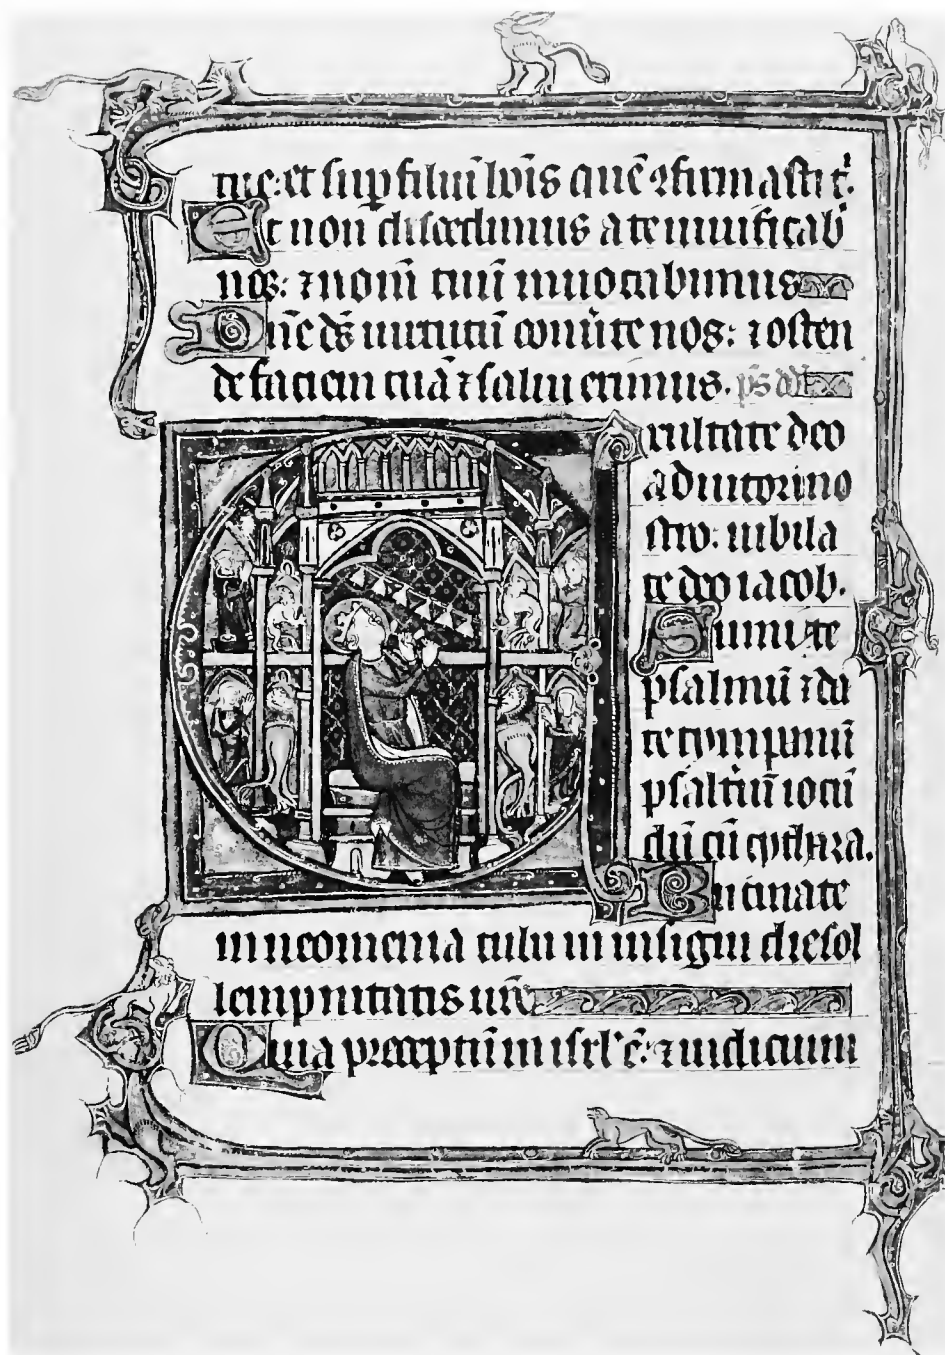 tue: et sup̱ filiū hōis quē ꝯfirmasti t'.
Et non discedimus a te uiuificab'
nos: ⁊ nom̄ tuū inuocabimus
Dn̄e ds̄ uirtutū conu'te nos: ⁊ osten
de faciem tuā ⁊ salui erimus. ps̄ dd̄
Exultate deo
adiutori no
stro: iubila
te deo iacob.
Sumite
psalmū ⁊ da
te tympanū
psalt'iū iocū
dū cū cythara.
Bucinate
in neomenia tuba in insigni die sol
lempnitatis ur̄e
Quia preceptū in isrl' ē: ⁊ iudicium